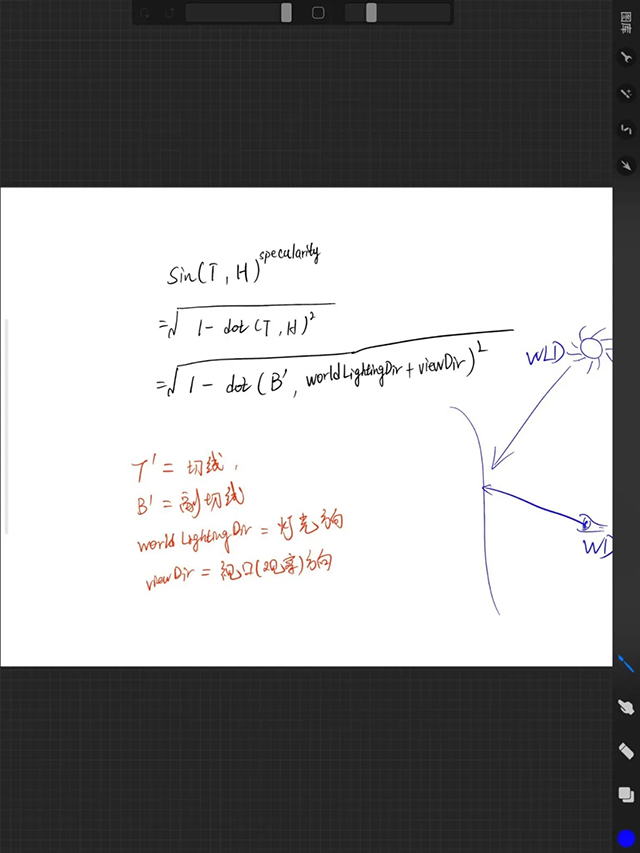 图库
sin(T, H)^specularity
=√1-dot(T, H)²
=√1-dot(B', worldLightingDir+viewDir)²
WLD
T'=切线,
B'=副切线
worldLightingDir=灯光方向
viewDir=视口(观察)方向
WD